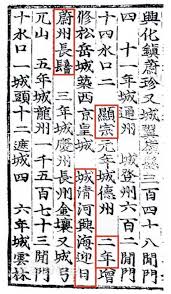 興化鎮蔚珍又城翼嶺縣三百四十八間門
四 十一年城通州 城登州六百二間門
十四水口二 顯宗元年城德州 二年增
修松岳城築西京皇城 城清河興海迎日
蔚州長鬐 三年城慶州長州金壤又城弓
元山 五年城龍州 千五百七十三間門
十水口一城頭十二遮城四 六年城雲林